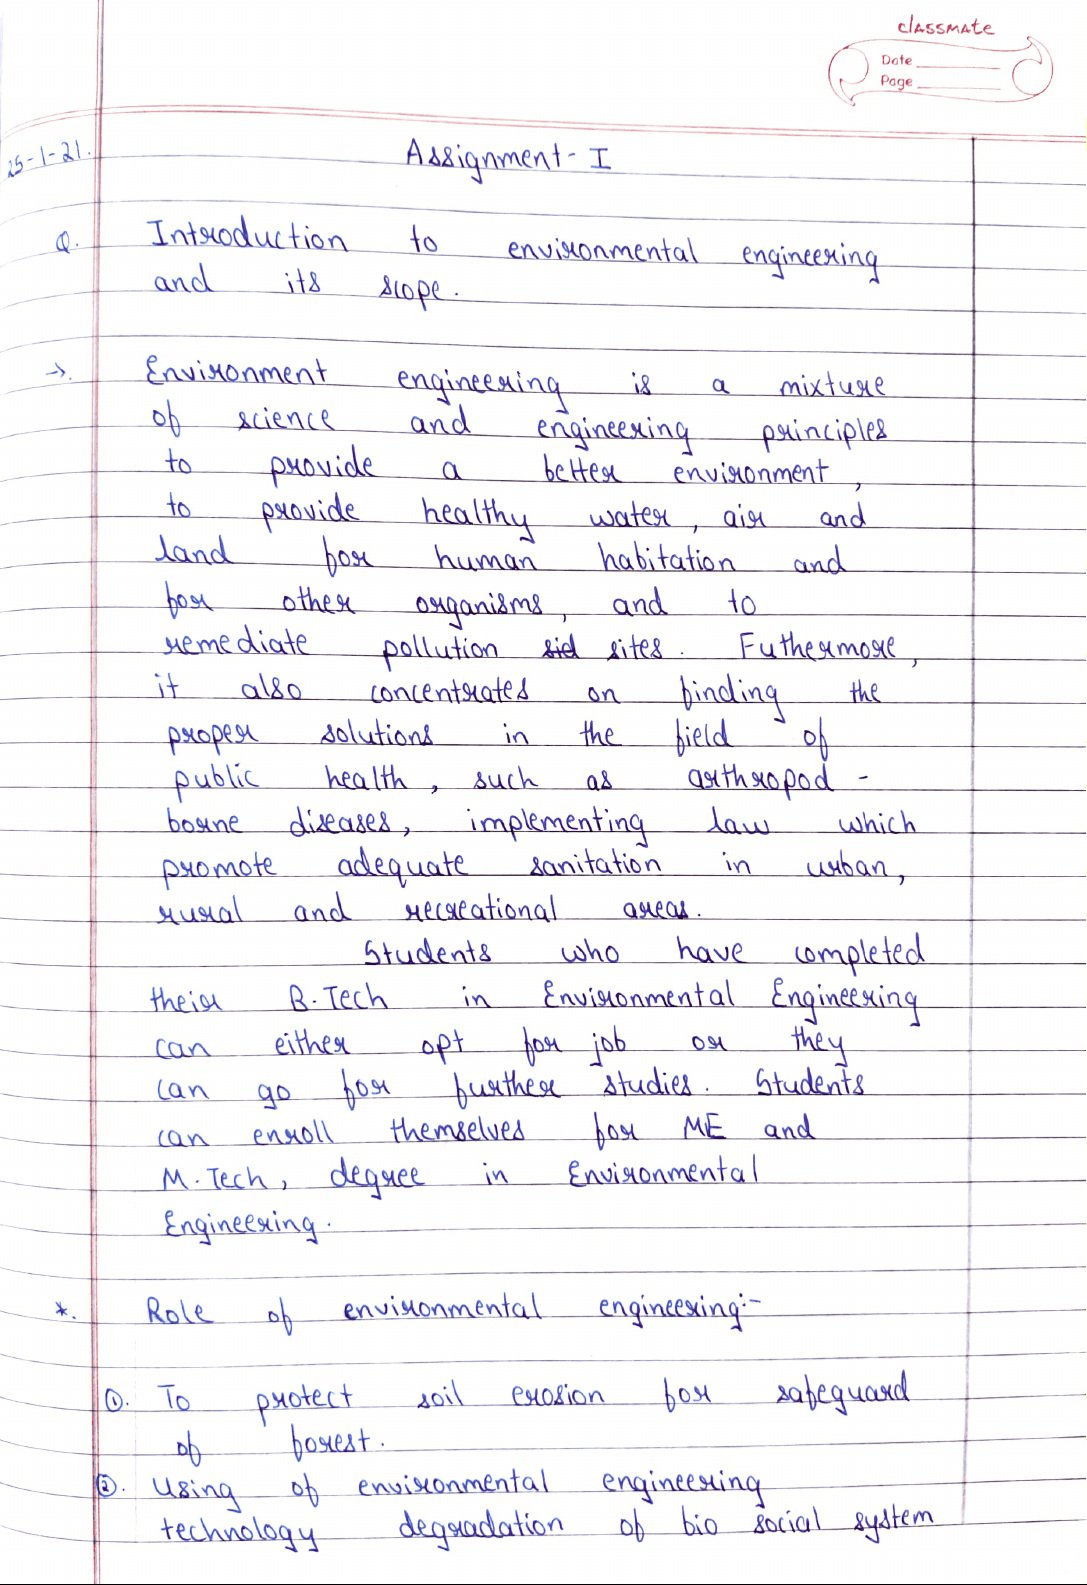 classmate
Date
Page
25-1-21.
Assignment - I
Q. Introduction to environmental engineering
and its scope.
→. Environment engineering is a mixture
of science and engineering principles
to provide a better environment,
to provide healthy water, air and
land for human habitation and
for other organisms, and to
remediate pollution sid sites. Futhermore,
it also concentrates on finding the
proper solutions in the field of
public health, such as arthropod -
borne diseases, implementing law which
promote adequate sanitation in urban,
rural and recreational areas.
Students who have completed
their B.Tech in Environmental Engineering
can either opt for job or they
can go for further studies. Students
can enroll themselves for ME and
M.Tech, degree in Environmental
Engineering.
*. Role of environmental engineering:-
①. To protect soil erosion for safeguard
of forest.
②. Using of environmental engineering
technology degradation of bio social system